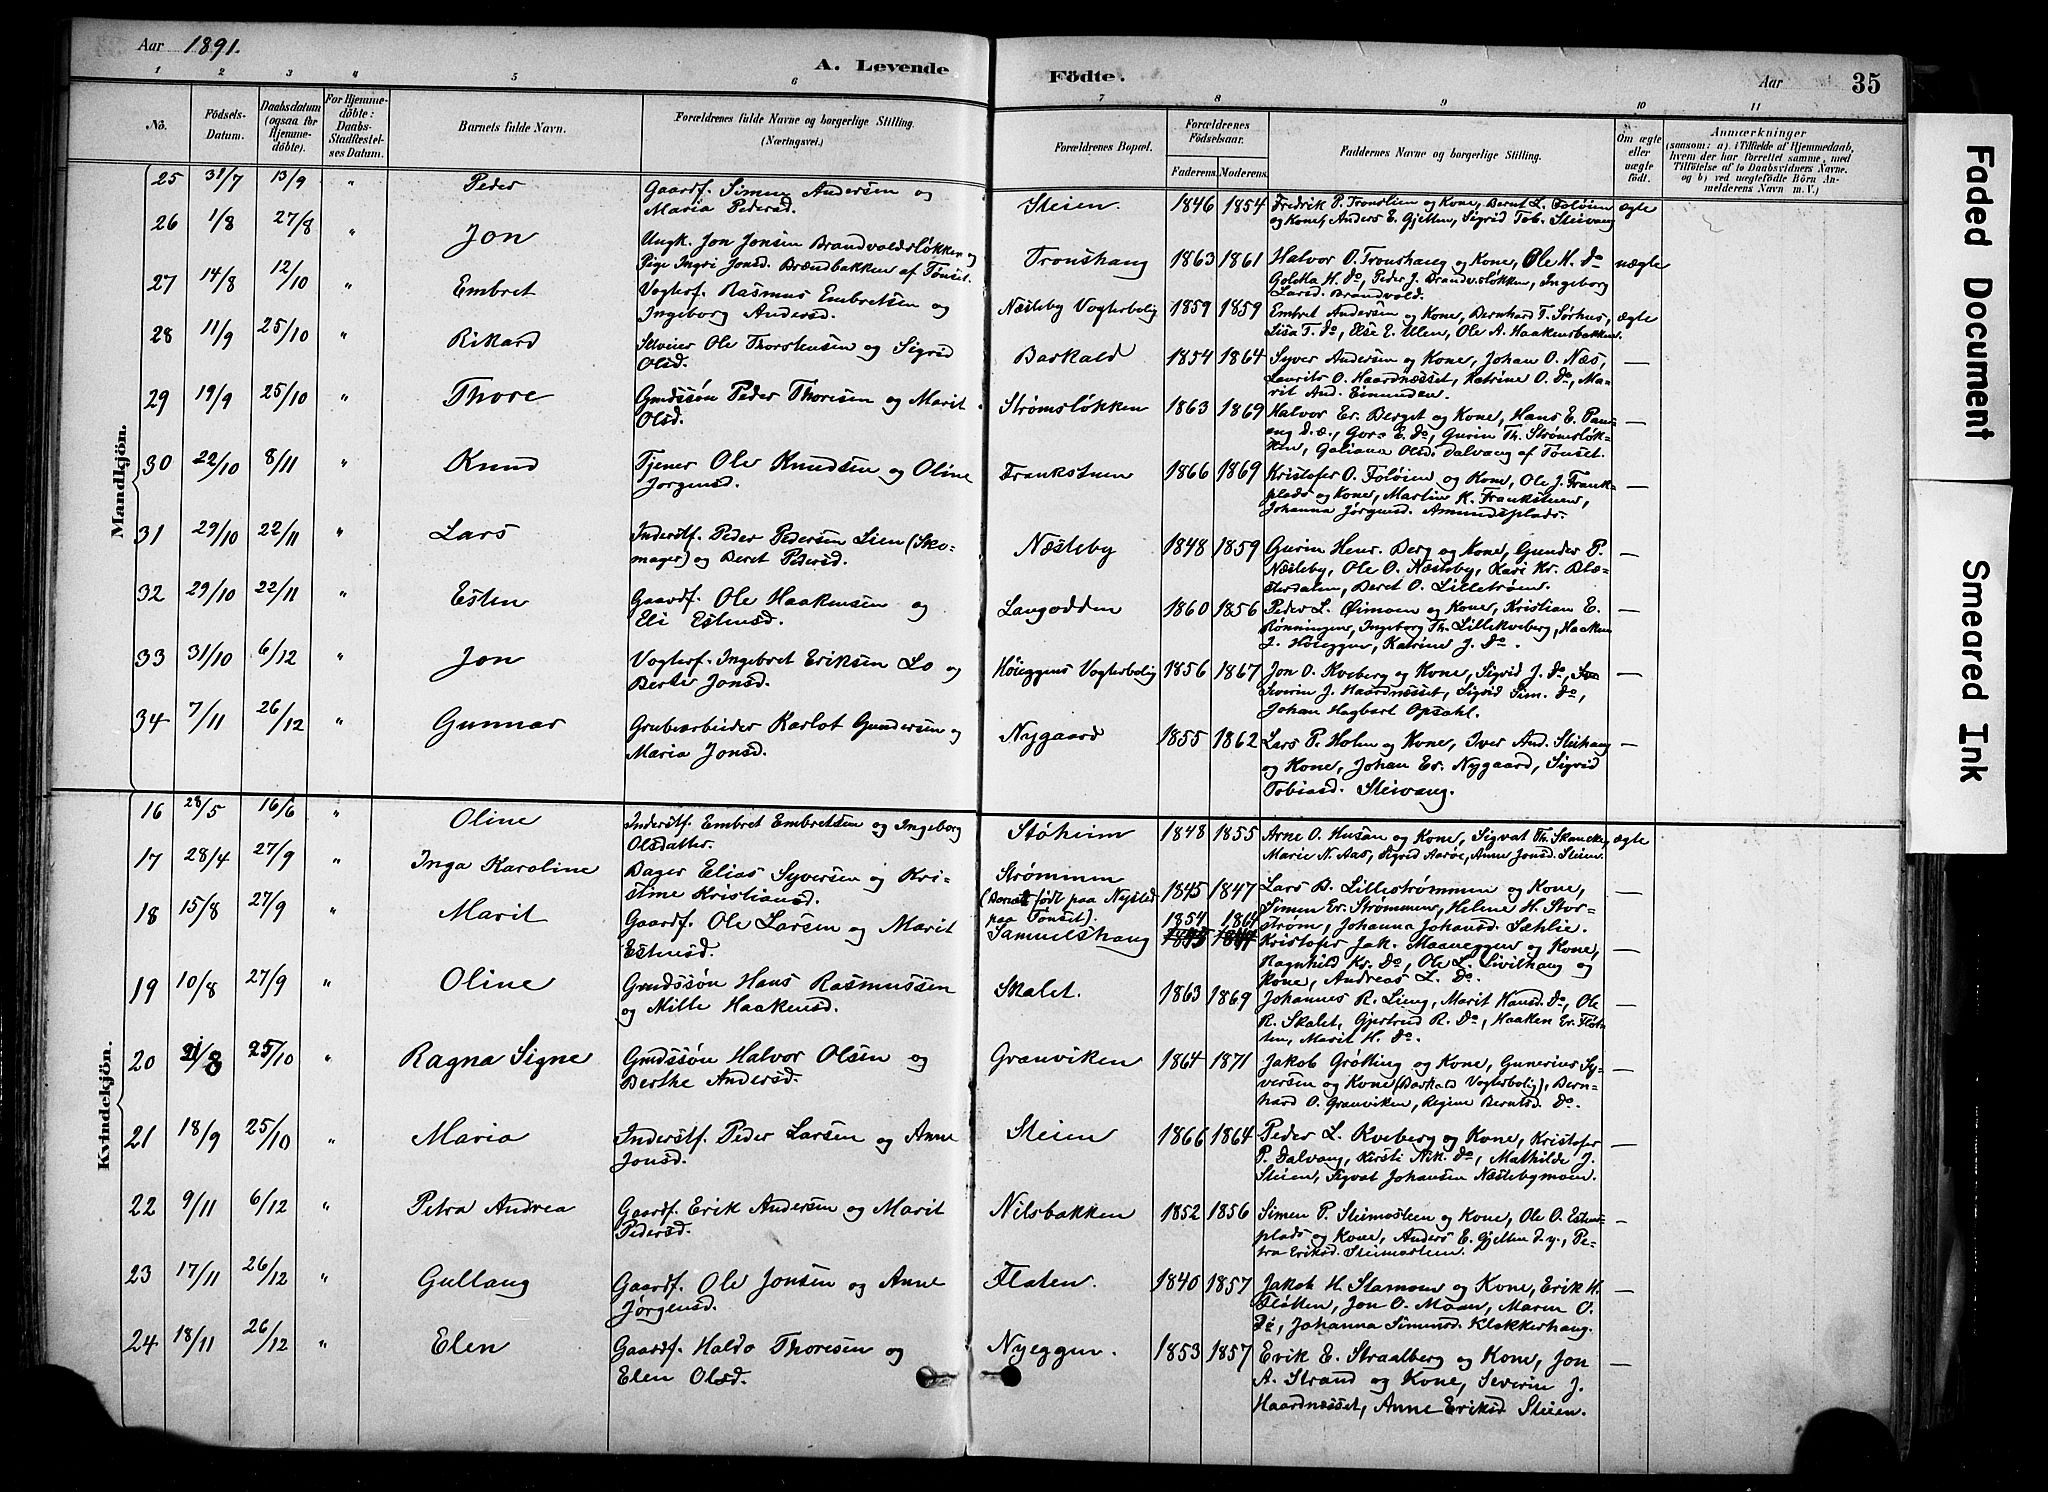 Aar 1891.
A. Levende Födte.
Aar 35
1 2 3 4 5 6 7 8 9 10 11
No.
Födsels-Datum.
Daabsdatum (ogsaa for Hjemmedöbte).
For Hjemmedöbte: Daabs-Stadfæstelses Datum.
Barnets fulde Navn.
Forældrenes fulde Navne og borgerlige Stilling.
(Næringsvei.)
Forældrenes Bopæl.
Forældrenes Födselsaar.
Faderens. Moderens.
Faddernes Navne og borgerlige Stilling.
Om ægte eller uægte födt.
Anmærkninger
(saasom: a). i Tilfælde af Hjemmedaab, hvem der har forrettet samme, med Tilföielse af to Daabsvidners Navne. og b) ved uægtefödte Börn Anmelderens Navn m. V.)
Mandkjön.
25 31/7 13/9 " Peder
Gaardf. Simen Andersen og
Maria Pedersd.
Steien. 1846 1854
Fredrik P. Tronslien og Kone, Bernt L. Foløien
og Kone, Anders E. Gjelten, Sigrid Tob. Steivang
ægte
26 1/8 27/8 " Jon
Ungk. Jon Jonsen Brandvoldsløkken og
Pige Ingri Jonsd. Brændbakken af Tønset.
Tronshaug 1863 1861
Halvor O. Tronshaug og Kone, Ole H. do
Goletta H. do, Peder J. Brandv.sløkken, Ingeborg
Larsd. Brandvold.
uægte
27 14/8 12/10 " Embret
Vogterf. Rasmus Embretsen og
Ingeborg Andersd.
Næsteby Vogterbolig 1859 1859
Embret Andersen og Kone, Bernhard T. Sørhus,
Lisa T. do, Else E. Ulen, Ole A. Haakensbakken.
ægte
28 11/9 25/10 " Rikard
Skreier Ole Thorstensen og Sigrid
Olsd.
Barkald 1854 1864
Syver Andersen og Kone, Johan O. Næs,
Laurits O. Haardnæsset, Katrine O. do, Ma-
rit And. Eimunden.
—
29 19/9 25/10 " Thore
Gmdssøn Peder Thoresen og Marit
Olsd.
Strømsløkken 1863 1869
Halvor Er. Berget og Kone, Hans E. Pau-
aug d.æ., Gore E. do, Gurin Th. Strømsløk-
ken, Galiana Olsd. Dalvang af Tønset.
—
30 22/10 8/11 " Knud
Tjener Ole Knudsen og Oline
Jørgensd.
Frankstuen 1866 1869
Kristofer O. Foløien og Kone, Ole J. Frank-
plads og Kone, Martin K. Frankstuen,
Johanna Jørgensd. Amundsplads.
—
31 29/10 22/11 " Lars
Inderstf. Peder Pedersen Lien (Sko-
mager) og Beret Pedersd.
Næsteby 1848 1859
Gurin Henr. Berg og Kone, Gunder P.
Næsteby, Ole O. Næsteby, Kari Kr. Blæ-
sterdalen, Beret O. Lillestrøm.
—
32 29/10 22/11 " Esten
Gaardf. Ole Haakensen og
Eli Estensd.
Langodden 1860 1856
Peder L. Øimoen og Kone, Kristian E.
Rønningen, Ingeborg Th. Lillekveberg, Haaken
J. Høieggen, Katrine J. do.
—
33 31/10 6/12 " Jon
Vogterf. Ingebret Eriksen Lo og
Berte Jonsd.
Høieggens Vogterbolig 1856 1867
Jon O. Kveberg og Kone, Sigrid J. do,
Severin J. Haardnæsset, Sigrid Sim. do,
Johan Hagbart Opsahl.
—
34 7/11 26/12 " Gunnar
Grubearbeider Karlot Gundersen og
Maria Jonsd.
Nygaard 1855 1862
Lars P. Holm og Kone, Iver And. Steihaug
og Kone, Johan Er. Nygaard, Sigrid
Tobiasd. Steivang.
—
Kvindekjön.
16 28/5 16/6 " Oline
Inderstf. Embret Embretsen og Ingeborg
Olsdatter.
Støheim 1848 1855
Arne O. Husan og Kone, Sigvat Th. Skancke,
Marie N. Aas, Sigrid Aarøe, Anne Jonsd. Steien.
ægte
17 28/4 27/9 " Inga Karoline
Bager Elias Syversen og Kri-
stine Kristiansd.
Strømmen
(Barnet født paa Nysted
paa Tønset).
1845 1847
Lars B. Lillestrømmen og Kone,
Simen Er. Strømmen, Helene H. Stor-
strøm, Johanna Johansd. Sehlie.
—
18 15/8 27/9 " Marit
Gaardf. Ole Larsen og Marit
Estensd.
Samuelshaug 1854 1864
1845 1847
Kristofer Jak. Maaneggen og Kone,
Ragnhild Kr. do, Ole L. Livilhaug og
Kone, Andreas L. do.
19 10/8 27/9 " Oline
Gmdssøn Hans Rasmussen
og Mille Haakensd.
Skalet. 1863 1869
Johannes R. Lieng, Marit Hansd. do, Ole
R. Skalet, Gjertrud R. do, Haaken Er. Fløt-
ten, Marit H. do.
—
20 21/8 25/10 " Ragna Signe
Gmdssøn Halvor Olsen og
Berthe Andersd.
Granviken 1864 1871
Jakob Grøtting og Kone, Gunerius Sy-
versen og Kone (Barkald Vogterbolig), Bern-
hard O. Granviken, Regine Berntsd. do.
—
21 18/9 25/10 " Maria
Inderstf. Peder Larsen og Anne
Jonsd.
Steien 1866 1864
Peder L. Kveberg og Kone, Kristofer
P. Dalvang, Kirsti Nik. do, Mathilde J.
Steien, Sigvat Johansen Næstebymoen.
—
22 9/11 6/12 " Petra Andrea
Gaardf. Erik Andersen og Marit
Pedersd.
Nilsbakken 1852 1856
Simen P. Steimosteen og Kone, Ole O. Esten-
plads og Kone, Anders E. Gjelten d.y., Pe-
tra Eriksd. Steimosteen.
—
23 17/11 26/12 " Gullaug
Gaardf. Ole Jonsen og Anne
Jørgensd.
Flaten. 1840 1857
Jakob H. Stamoen og Kone, Erik H.
Fløtten, Jon O. Moan, Maren O.
do, Johanna Simensd. Klokkerhaug.
—
24 18/11 26/12 " Elen
Gaardf. Haldo Thoresen og
Elen Olsd.
Nyeggen. 1853 1857
Erik E. Straalberg og Kone, Jon
A. Strand og Kone, Severin J.
Haardnæsset, Anne Eriksd Steien.
—
Faded Document
Smeared Ink